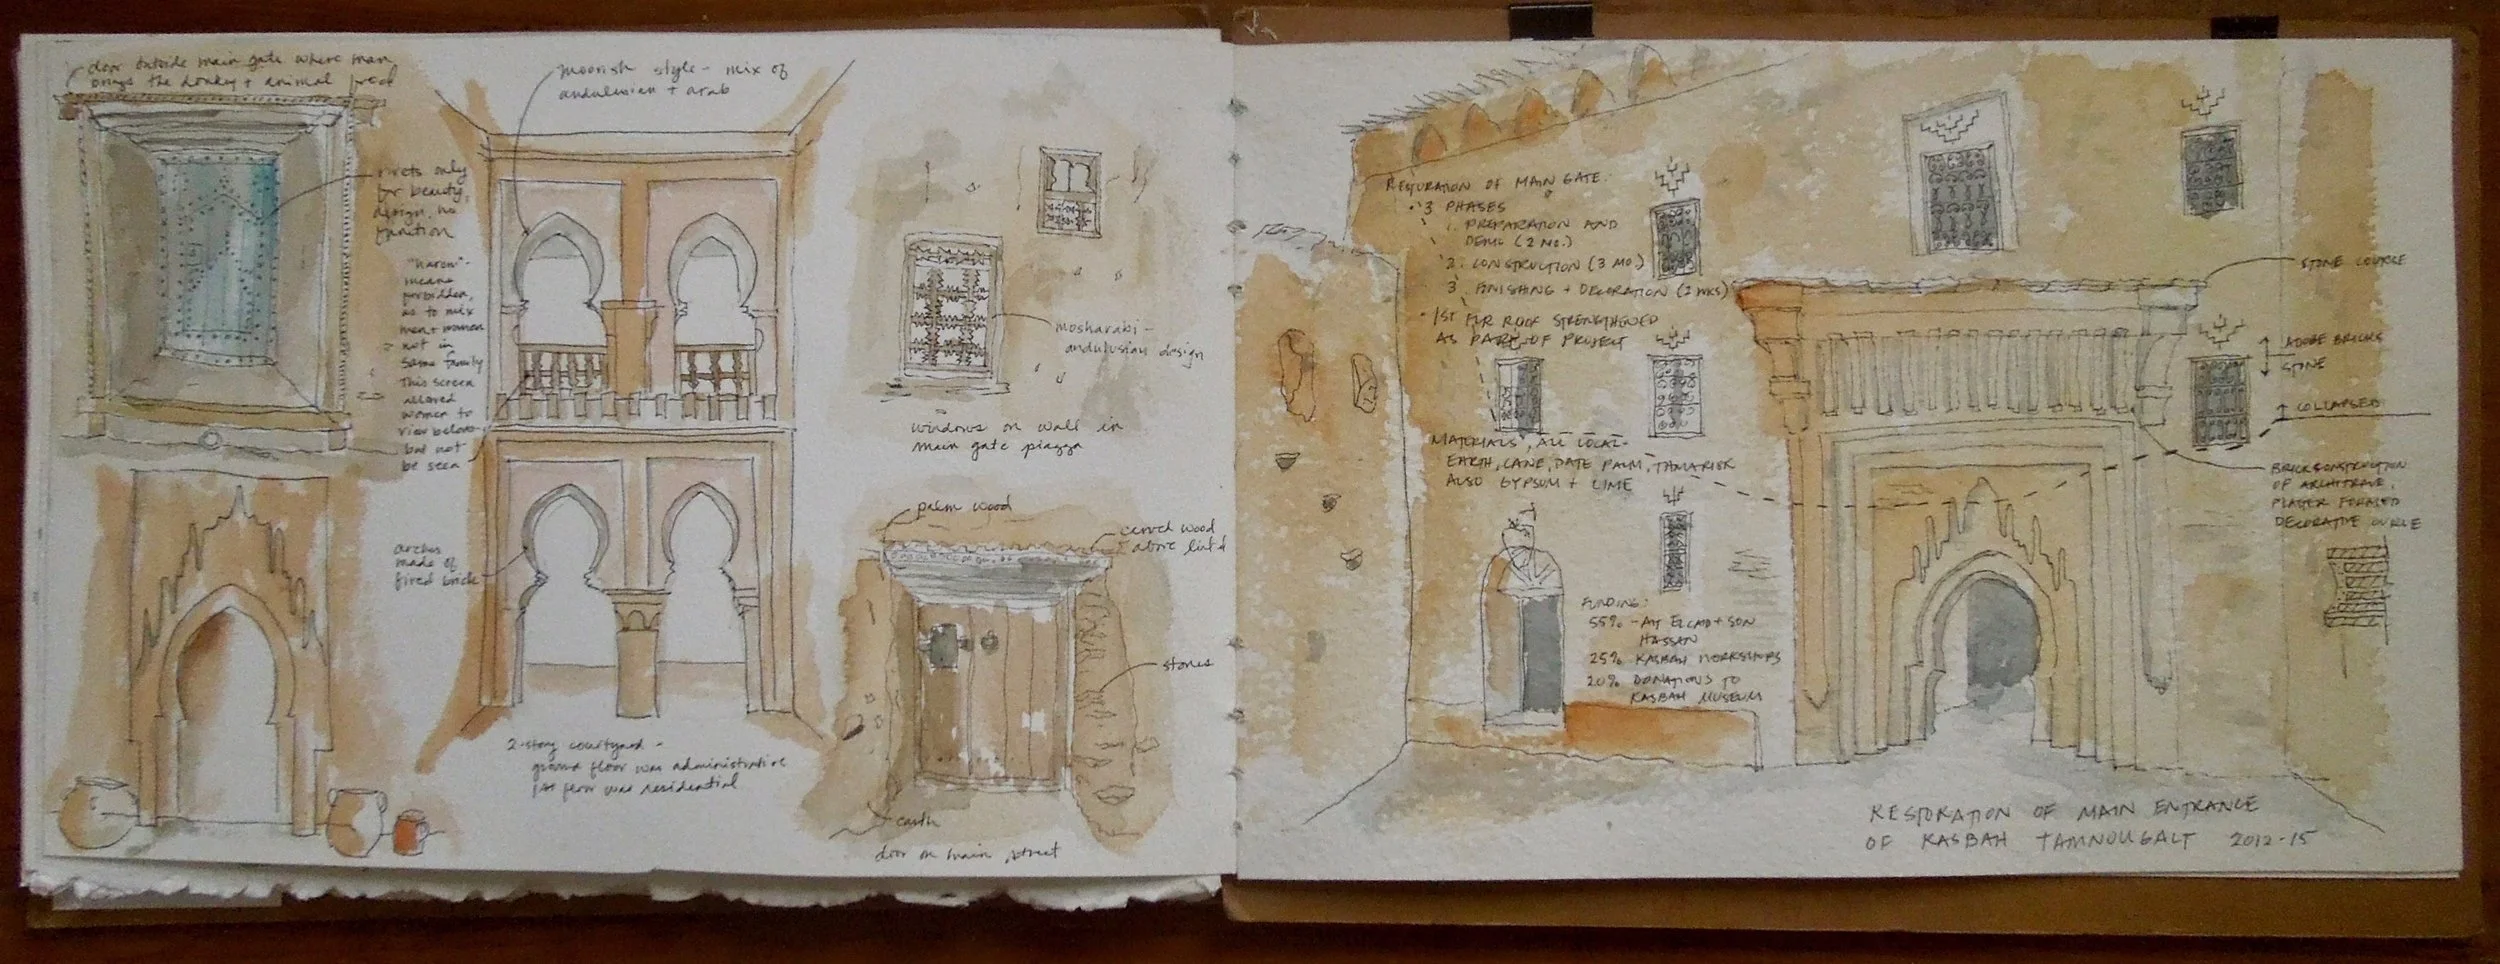 door outside main gate where man
brings the donkey + animal food
rivets only
for beauty,
design, no
function
"haram" -
means
forbidden,
as to mix
men + women
not in
same family
This screen
allowed
women to
view below
but not
be seen
moorish style - mix of
andulusian + arab
arches
made of
fired brick
2-story courtyard -
ground floor was administrative
1st floor was residential
mosharabi -
andulusian design
windows on wall in
main gate piazza
palm wood
carved wood
above lintel
stones
earth
door on main street
RESTORATION OF MAIN GATE:
• 3 PHASES
1. PREPARATION AND
DEMO (2 MO.)
2. CONSTRUCTION (3 MO.)
3. FINISHING + DECORATION (2 WKS)
• 1ST FLR ROOF STRENGTHENED
AS PART OF PROJECT
MATERIALS, ALL LOCAL -
EARTH, CANE, DATE PALM, TAMARISK
ALSO GYPSUM + LIME
FUNDING:
55% - AIT ELCAID + SON
HASSAN
25% KASBAH WORKSHOPS
20% DONATIONS TO
KASBAH MUSEUM
STONE COURSE
ADOBE BRICKS
STONE
COLLAPSED
BRICK CONSTRUCTION
OF ARCHITRAVE,
FORMED
DECORATIVE
RESTORATION OF MAIN ENTRANCE
OF KASBAH TAMNOUGALT 2012-15